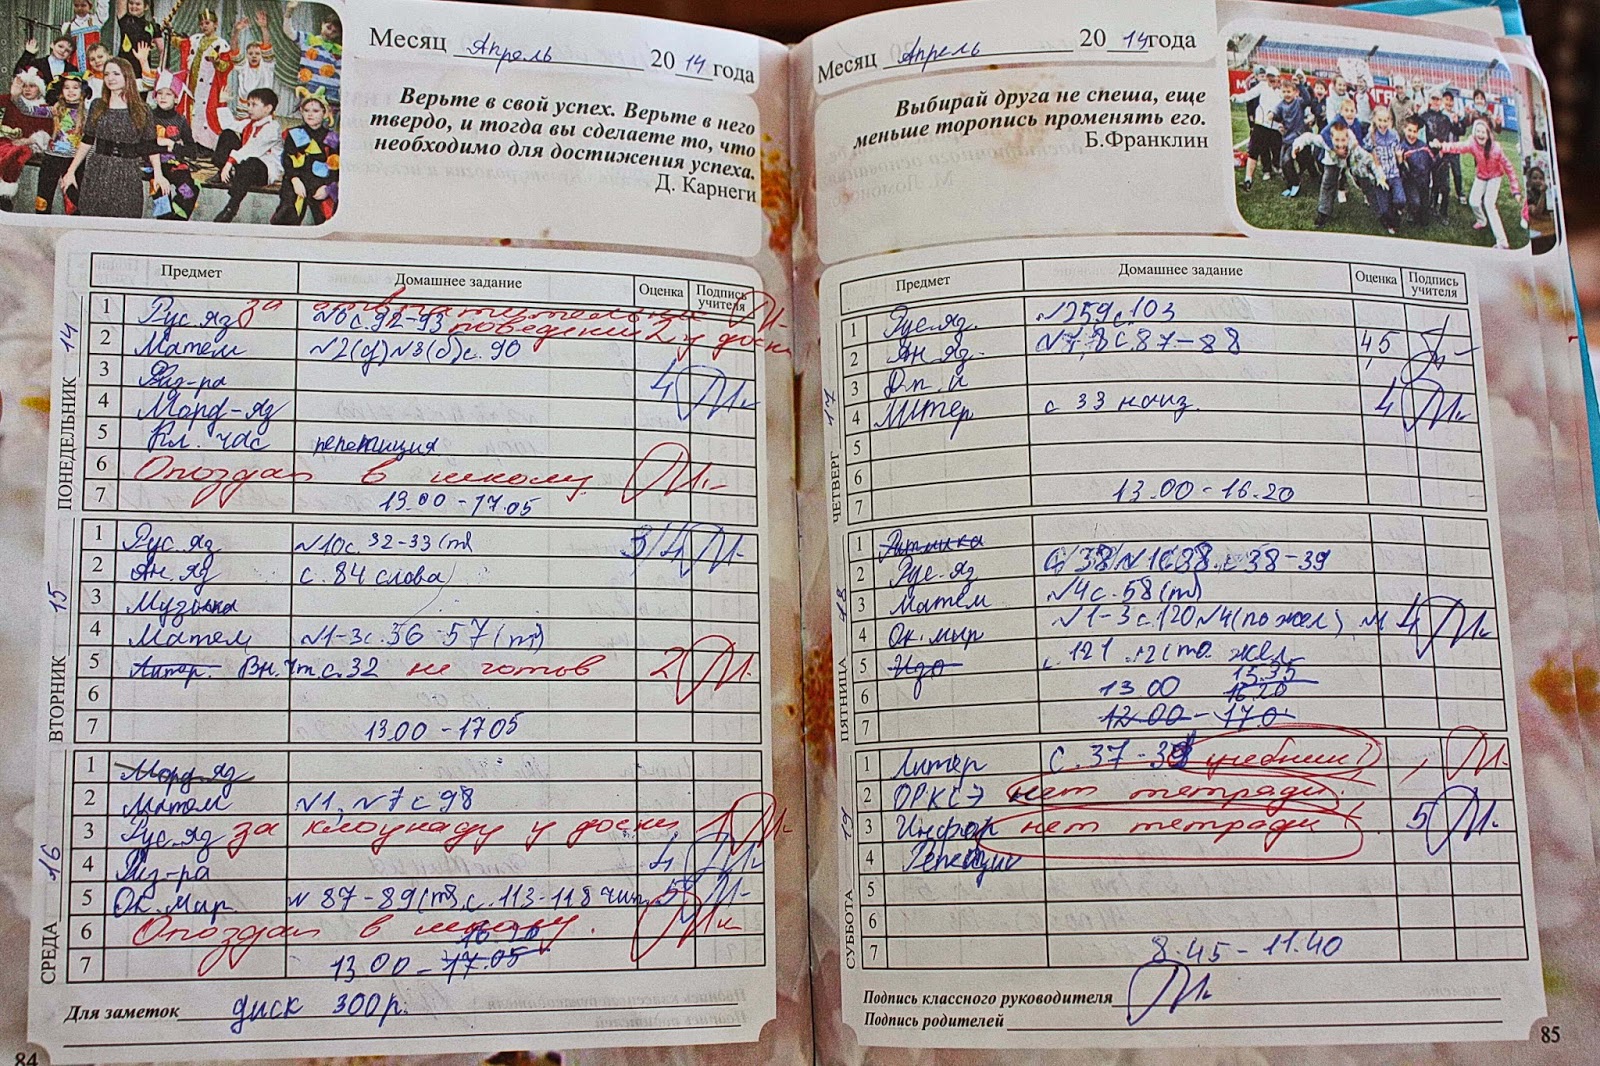 Месяц Апрель 2014 года
Верьте в свой успех. Верьте в него
твердо, и тогда вы сделаете то, что
необходимо для достижения успеха.
Д. Карнеги
Предмет Домашнее задание Оценка Подпись учителя
ПОНЕДЕЛЬНИК 14
1 Рус. яз №6 с. 92-93 за отвратительное
2 Матем №2(д) №3(б) с. 90 поведение 2 у доски
3 Физ-ра 4
4 Морд-яз
5 Кл. час репетиция
6 Опоздал в школу.
7 13.00-17.05
ВТОРНИК 15
1 Рус. яз №10 с. 32-33(т) 3/4
2 Ан. яз с. 84 слова
3 Музыка
4 Матем №1-3 с. 56-57(т)
5 Литер. Вн. чт. с. 32 не готов 2
6
7 13.00-17.05
СРЕДА 16
1 Морд-яз
2 Матем №1, №7 с 98
3 Рус. яз за клоунаду у доски 1
4 Физ-ра 4
5 Ок. мир. № 87-89(т), с. 113-118 чит 5
6 Опоздал в школу.
7 13.00-17.05
Для заметок диск 300 р.
84
Месяц Апрель 2014 года
Выбирай друга не спеша, еще
меньше торопись променять его.
Б.Франклин
Предмет Домашнее задание Оценка Подпись учителя
ЧЕТВЕРГ 17
1 Рус. яз. №259 с. 103
2 Ан. яз. №7,8 с. 87-88 4,5
3 О п к
4 Литер с 33 наиз. 4
5
6
7 13.00-16.20
ПЯТНИЦА 18
1 Ритмика
2 Рус. яз с. 38-39
3 Матем №4 с. 58(т)
4 Ок. мир №1-3 с. 120 №4(по жел) 4
5 с. 121 жел
6 13.00 15.35 16.20
7 12.00-17.0
СУББОТА 19
1 Литер с. 37-39 учебник?
2 ОРКСЭ нет тетради.
3 Информ нет тетради 5
4 Репетиция
5
6
7 8.45-11.40
Подпись классного руководителя
Подпись родителей
85